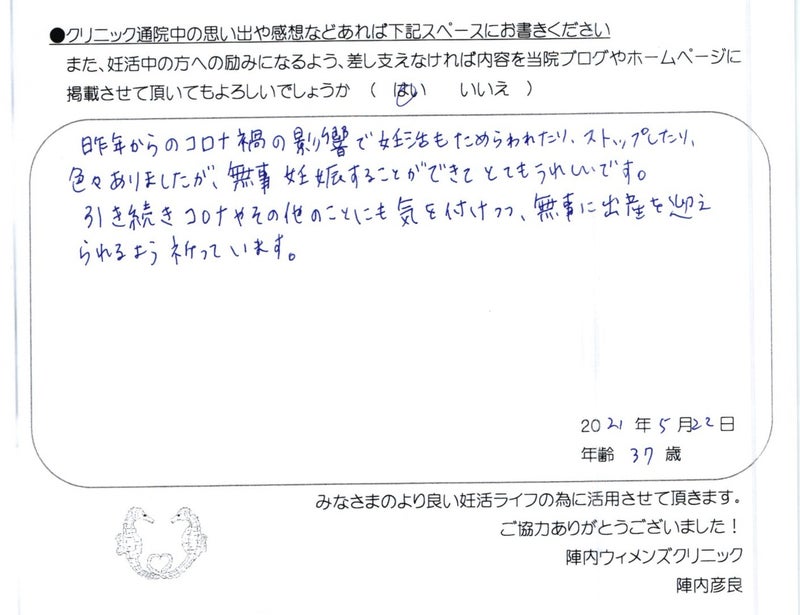 ●クリニック通院中の思い出や感想などあれば下記スペースにお書きください
また、妊活中の方への励みになるよう、差し支えなければ内容を当院ブログやホームページに
掲載させて頂いてもよろしいでしょうか （ はい いいえ ）
昨年からのコロナ禍の影響で妊活もためらわれたり、ストップしたり、
色々ありましたが、無事妊娠することができてとてもうれしいです。
引き続きコロナやその他のことにも気を付けつつ、無事に出産を迎え
られるよう祈っています。
2021年5月22日
年齢 37 歳
みなさまのより良い妊活ライフの為に活用させて頂きます。
ご協力ありがとうございました！
陣内ウィメンズクリニック
陣内彦良